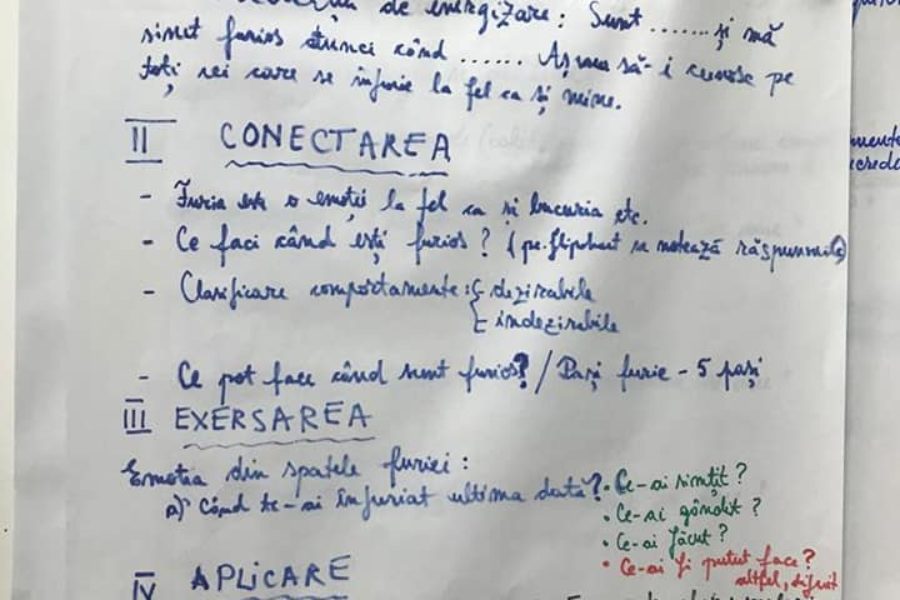 de energizare: Sunt ....... și mă
simt furios atunci când ...... Aș vrea să-i cunosc pe
toți cei care se înfurie la fel ca și mine.
II CONECTAREA
- Furia este o emoție la fel ca și bucuria etc.
- Ce faci când ești furios? (pe flipchart se notează răspunsurile)
- Clasificare comportamente: { dezirabile
indezirabile
- Ce pot face când sunt furios? / Pași furie - 5 pași
III EXERSAREA
Emoția din spatele furiei:
a) Când te-ai înfuriat ultima dată?
• Ce-ai simțit?
• Ce-ai gândit?
• Ce-ai făcut?
• Ce-ai fi putut face?
altfel, diferit
IV APLICARE